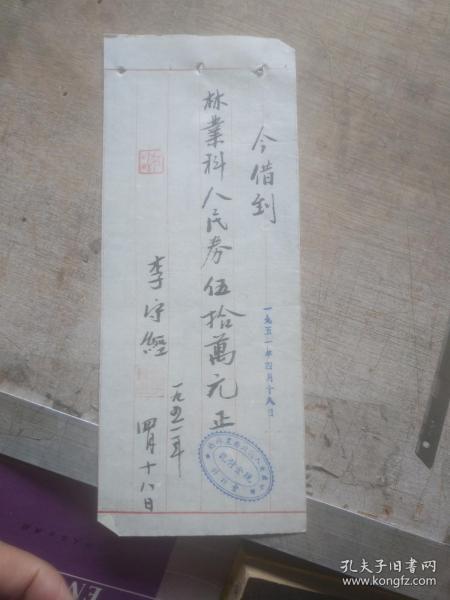 今借到
林業科人民券伍拾萬元正
一九五一年四月十九日
李守經
一九五一年
四月十八日
現金付訖
EN
孔夫子旧书网
www.kongfz.com